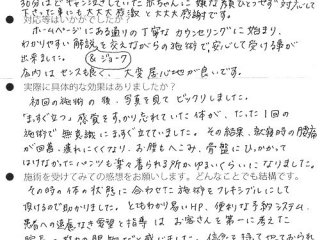 30分ほどギャン泣きしていた赤ちゃんに嫌な顔ひとつせず対応して
下さった事にも大大大感激と大大感謝です。
● 対応等はいかがでしたか?
ホームページにある通りの丁寧なカウンセリングに始まり、
わかりやすい解説を交えながらの施術で安心して受ける事が
出来ました。 &ジョーク
店内はセンスも良く、大変居心地が良いです。
● 実際に具体的な効果はありましたか?
初回の施術の後、写真を見てビックリしました。
「まっすぐ立つ」感覚をすっかり忘れていた体が、たった1回の
施術で無意識にまっすぐ立っていました。その結果、就寝時の腰痛
が回復、疲れにくくなり、お腹もへこみ、骨盤にひっかかって
はけなかったパンツも楽々着られる所かゆるいくらいになりました。
● 施術を受けてみての感想をお願いします。どんなことでも結構です。
その時の体の状態に合わせた施術をフレキシブルにして
頂けるので助かりました。とてもわかり易いHP、便利な予約システム、
患者への過度なき要望と指導はお客さんを第一に考えた